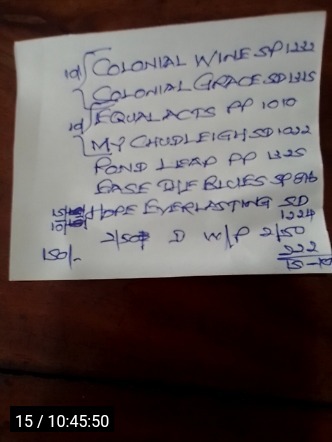 10/ COLONIAL WINE SP 1232
COLONIAL GRACE SD 1325
10/ EQUAL ACTS PP 1010
MY CHUDLEIGH SD 1022
POND LEAP PP 1225
EASE THE BLUES SP 816
15/ HOPE EVERLASTING SD
10/ 1224
2/50 D W/P 2/50
150/- 222
15-10
15 / 10:45:50